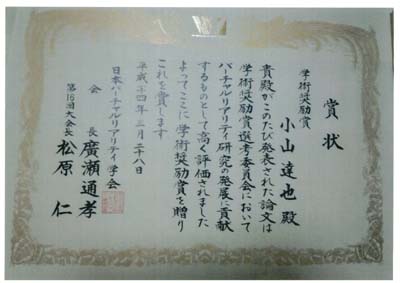 賞状
学術奨励賞
小山達也殿
貴殿がこのたび発表された論文は
学術奨励賞選考委員会において
バーチャルリアリティ研究の発展に貢献
するものとして高く評価されました
よってここに学術奨励賞を贈り
これを賞します
平成二十四年三月二十八日
日本バーチャルリアリティ学会
会長 廣瀬通孝
第16回大会長 松原仁